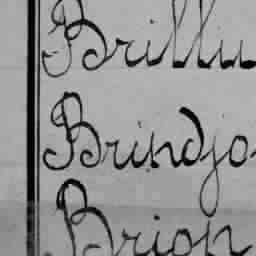 Brilliu
Brindjo
Brion